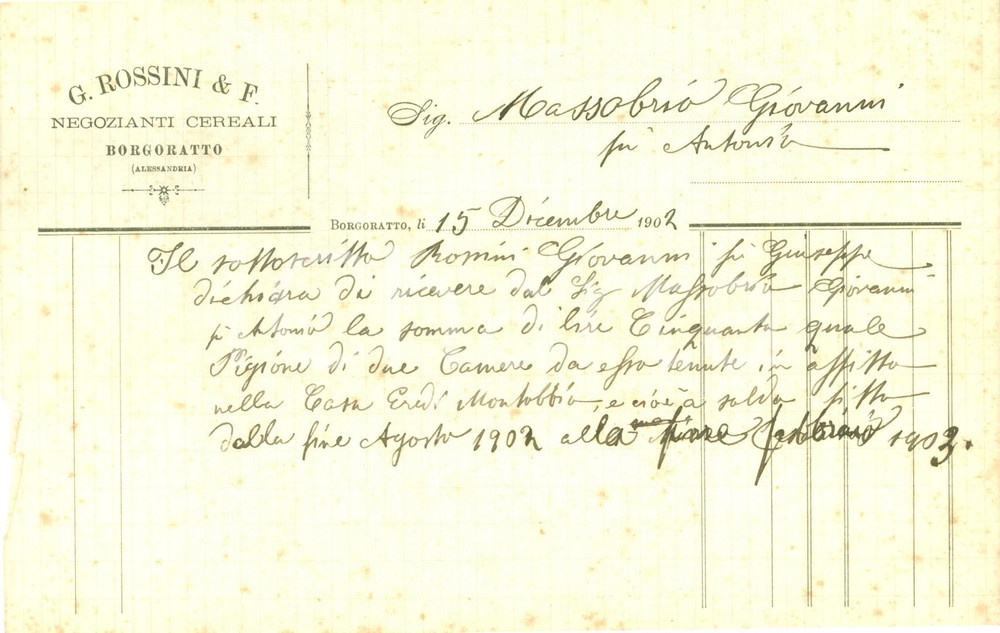 G. ROSSINI & F.
NEGOZIANTI CEREALI
BORGORATTO
(ALESSANDRIA)
Sig. Massobrio Giovanni
fu Antonio
BORGORATTO, li 15 Dicembre 1902
Il sottoscritto Rossini Giovanni fu Giuseppe
dichiara di ricevere dal Sig Massobrio Giovanni
fu Antonio la somma di lire Cinquanta quale
Pigione di due Camere da esso tenute in affitto
nella Casa Eredi Montobbio, e cioè a saldo fitto
dalla fine Agosto 1902 alla fine febbraio 1903.